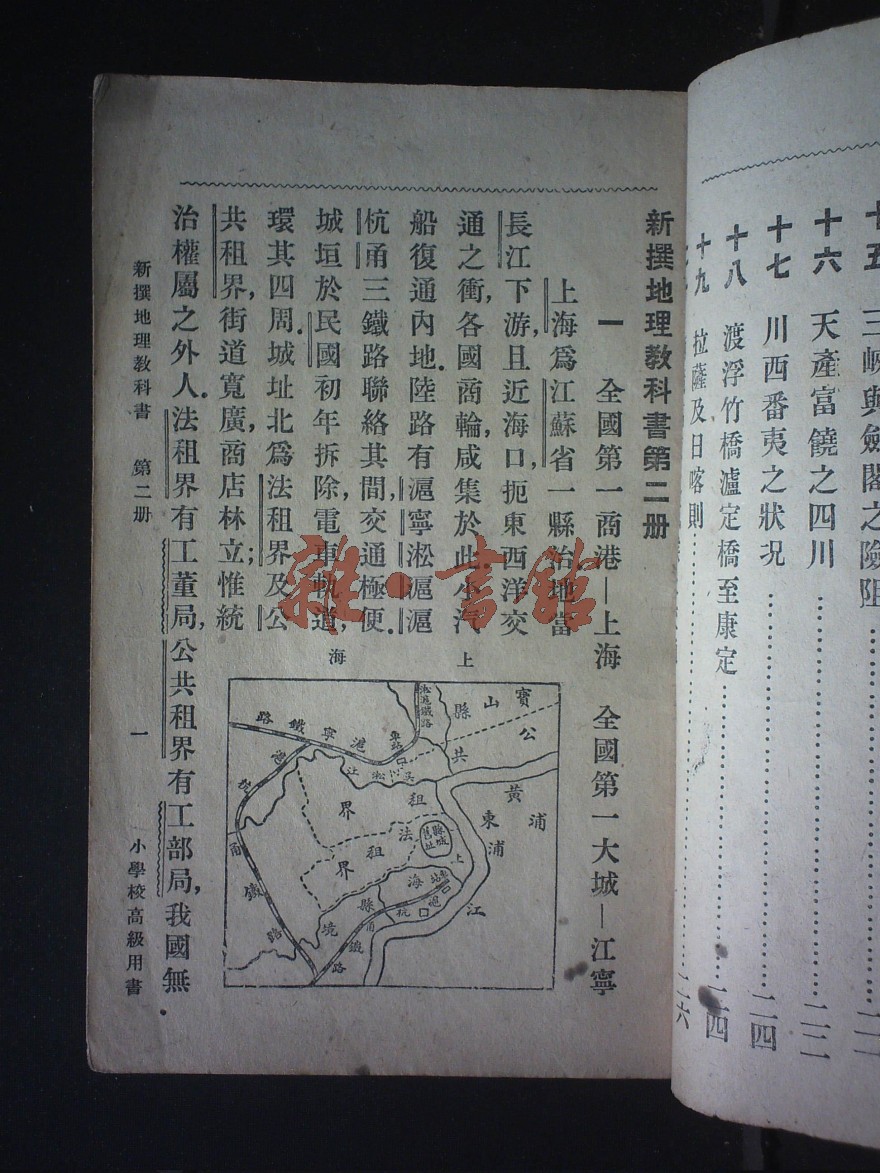 十六　天產富饒之四川………二二
十七　川西番夷之狀況………二四
十八　渡浮竹橋瀘定橋至康定………二四
十九　拉薩及日喀則………二六
新撰地理教科書第二册
一　全國第一商港—上海　全國第一大城—江寧
上海爲江蘇省一縣治地當
長江下游,且近海口,扼東西洋交
通之衝,各國商輪,咸集於此.小汽
船復通內地.陸路有滬寧淞滬滬
杭甬三鐵路聯絡其間,交通極便.
城垣於民國初年拆除,電車軌道,
環其四周.城址北爲法租界及公
共租界,街道寬廣,商店林立;惟統
治權屬之外人.法租界有工董局,公共租界有工部局,我國無
上海
寶山縣
公共租界
法租界
黃浦江
浦東
上海縣境
縣城舊址
吳淞江
滬寧鐵路
淞滬鐵路
滬杭甬鐵路
車站
新撰地理教科書　第二册
一
小學校高級用書
雜·書館